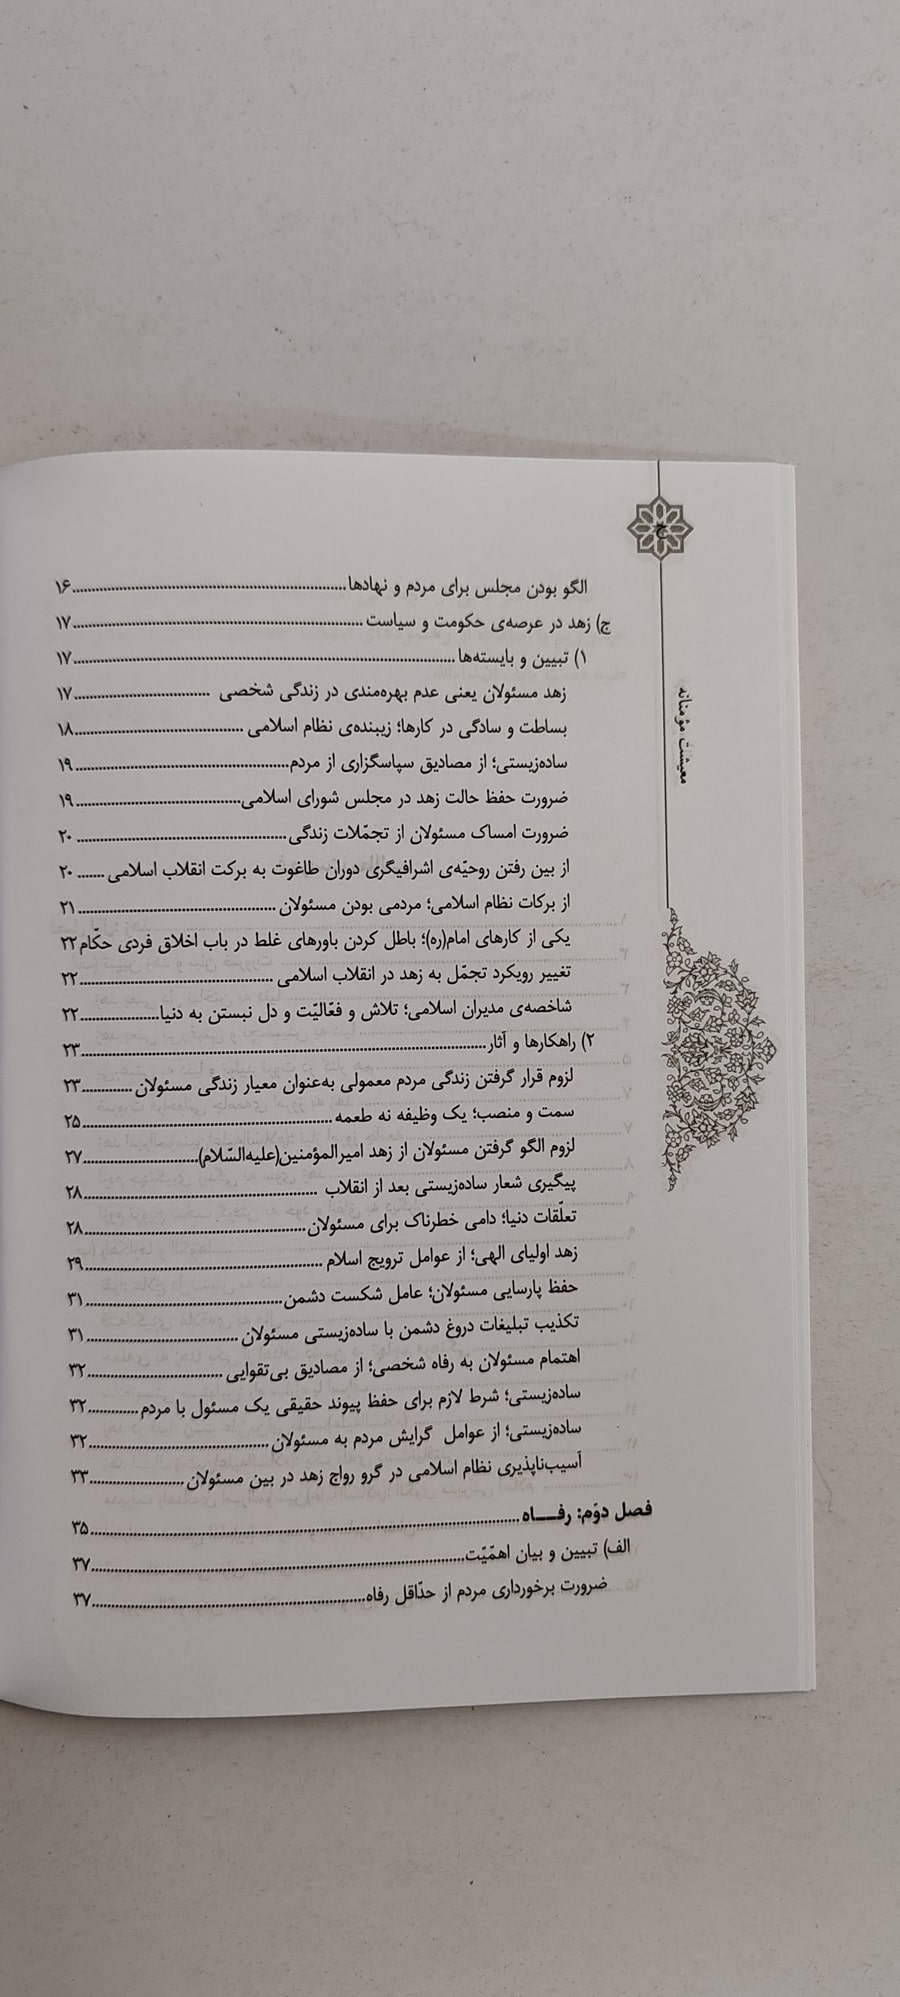 ج
معیشت مؤمنانه
الگو بودن مجلس برای مردم و نهادها ۱۶
ج) زهد در عرصه‌ی حکومت و سیاست ۱۷
۱) تبیین و بایسته‌ها ۱۷
زهد مسئولان یعنی عدم بهره‌مندی در زندگی شخصی ۱۷
بساطت و سادگی در کارها؛ زیبنده‌ی نظام اسلامی ۱۸
ساده‌زیستی؛ از مصادیق سپاسگزاری از مردم ۱۹
ضرورت حفظ حالت زهد در مجلس شورای اسلامی ۱۹
ضرورت امساک مسئولان از تجمّلات زندگی ۲۰
از بین رفتن روحیّه‌ی اشرافیگری دوران طاغوت به برکت انقلاب اسلامی ۲۰
از برکات نظام اسلامی؛ مردمی بودن مسئولان ۲۱
یکی از کارهای امام(ره)؛ باطل کردن باورهای غلط در باب اخلاق فردی حکّام ۲۲
تغییر رویکرد تجمّل به زهد در انقلاب اسلامی ۲۲
شاخصه‌ی مدیران اسلامی؛ تلاش و فعّالیّت و دل نبستن به دنیا ۲۲
۲) راهکارها و آثار ۲۳
لزوم قرار گرفتن زندگی مردم معمولی به‌عنوان معیار زندگی مسئولان ۲۳
سمت و منصب؛ یک وظیفه نه طعمه ۲۵
لزوم الگو گرفتن مسئولان از زهد امیرالمؤمنین(علیه‌السّلام) ۲۷
پیگیری شعار ساده‌زیستی بعد از انقلاب ۲۸
تعلّقات دنیا؛ دامی خطرناک برای مسئولان ۲۸
زهد اولیای الهی؛ از عوامل ترویج اسلام ۲۹
حفظ پارسایی مسئولان؛ عامل شکست دشمن ۳۱
تکذیب تبلیغات دروغ دشمن با ساده‌زیستی مسئولان ۳۱
اهتمام مسئولان به رفاه شخصی؛ از مصادیق بی‌تقوایی ۳۲
ساده‌زیستی؛ شرط لازم برای حفظ پیوند حقیقی یک مسئول با مردم ۳۲
ساده‌زیستی؛ از عوامل گرایش مردم به مسئولان ۳۲
آسیب‌ناپذیری نظام اسلامی در گرو رواج زهد در بین مسئولان ۳۳
فصل دوّم: رفــاه ۳۵
الف) تبیین و بیان اهمّیّت ۳۷
ضرورت برخورداری مردم از حدّاقل رفاه ۳۷